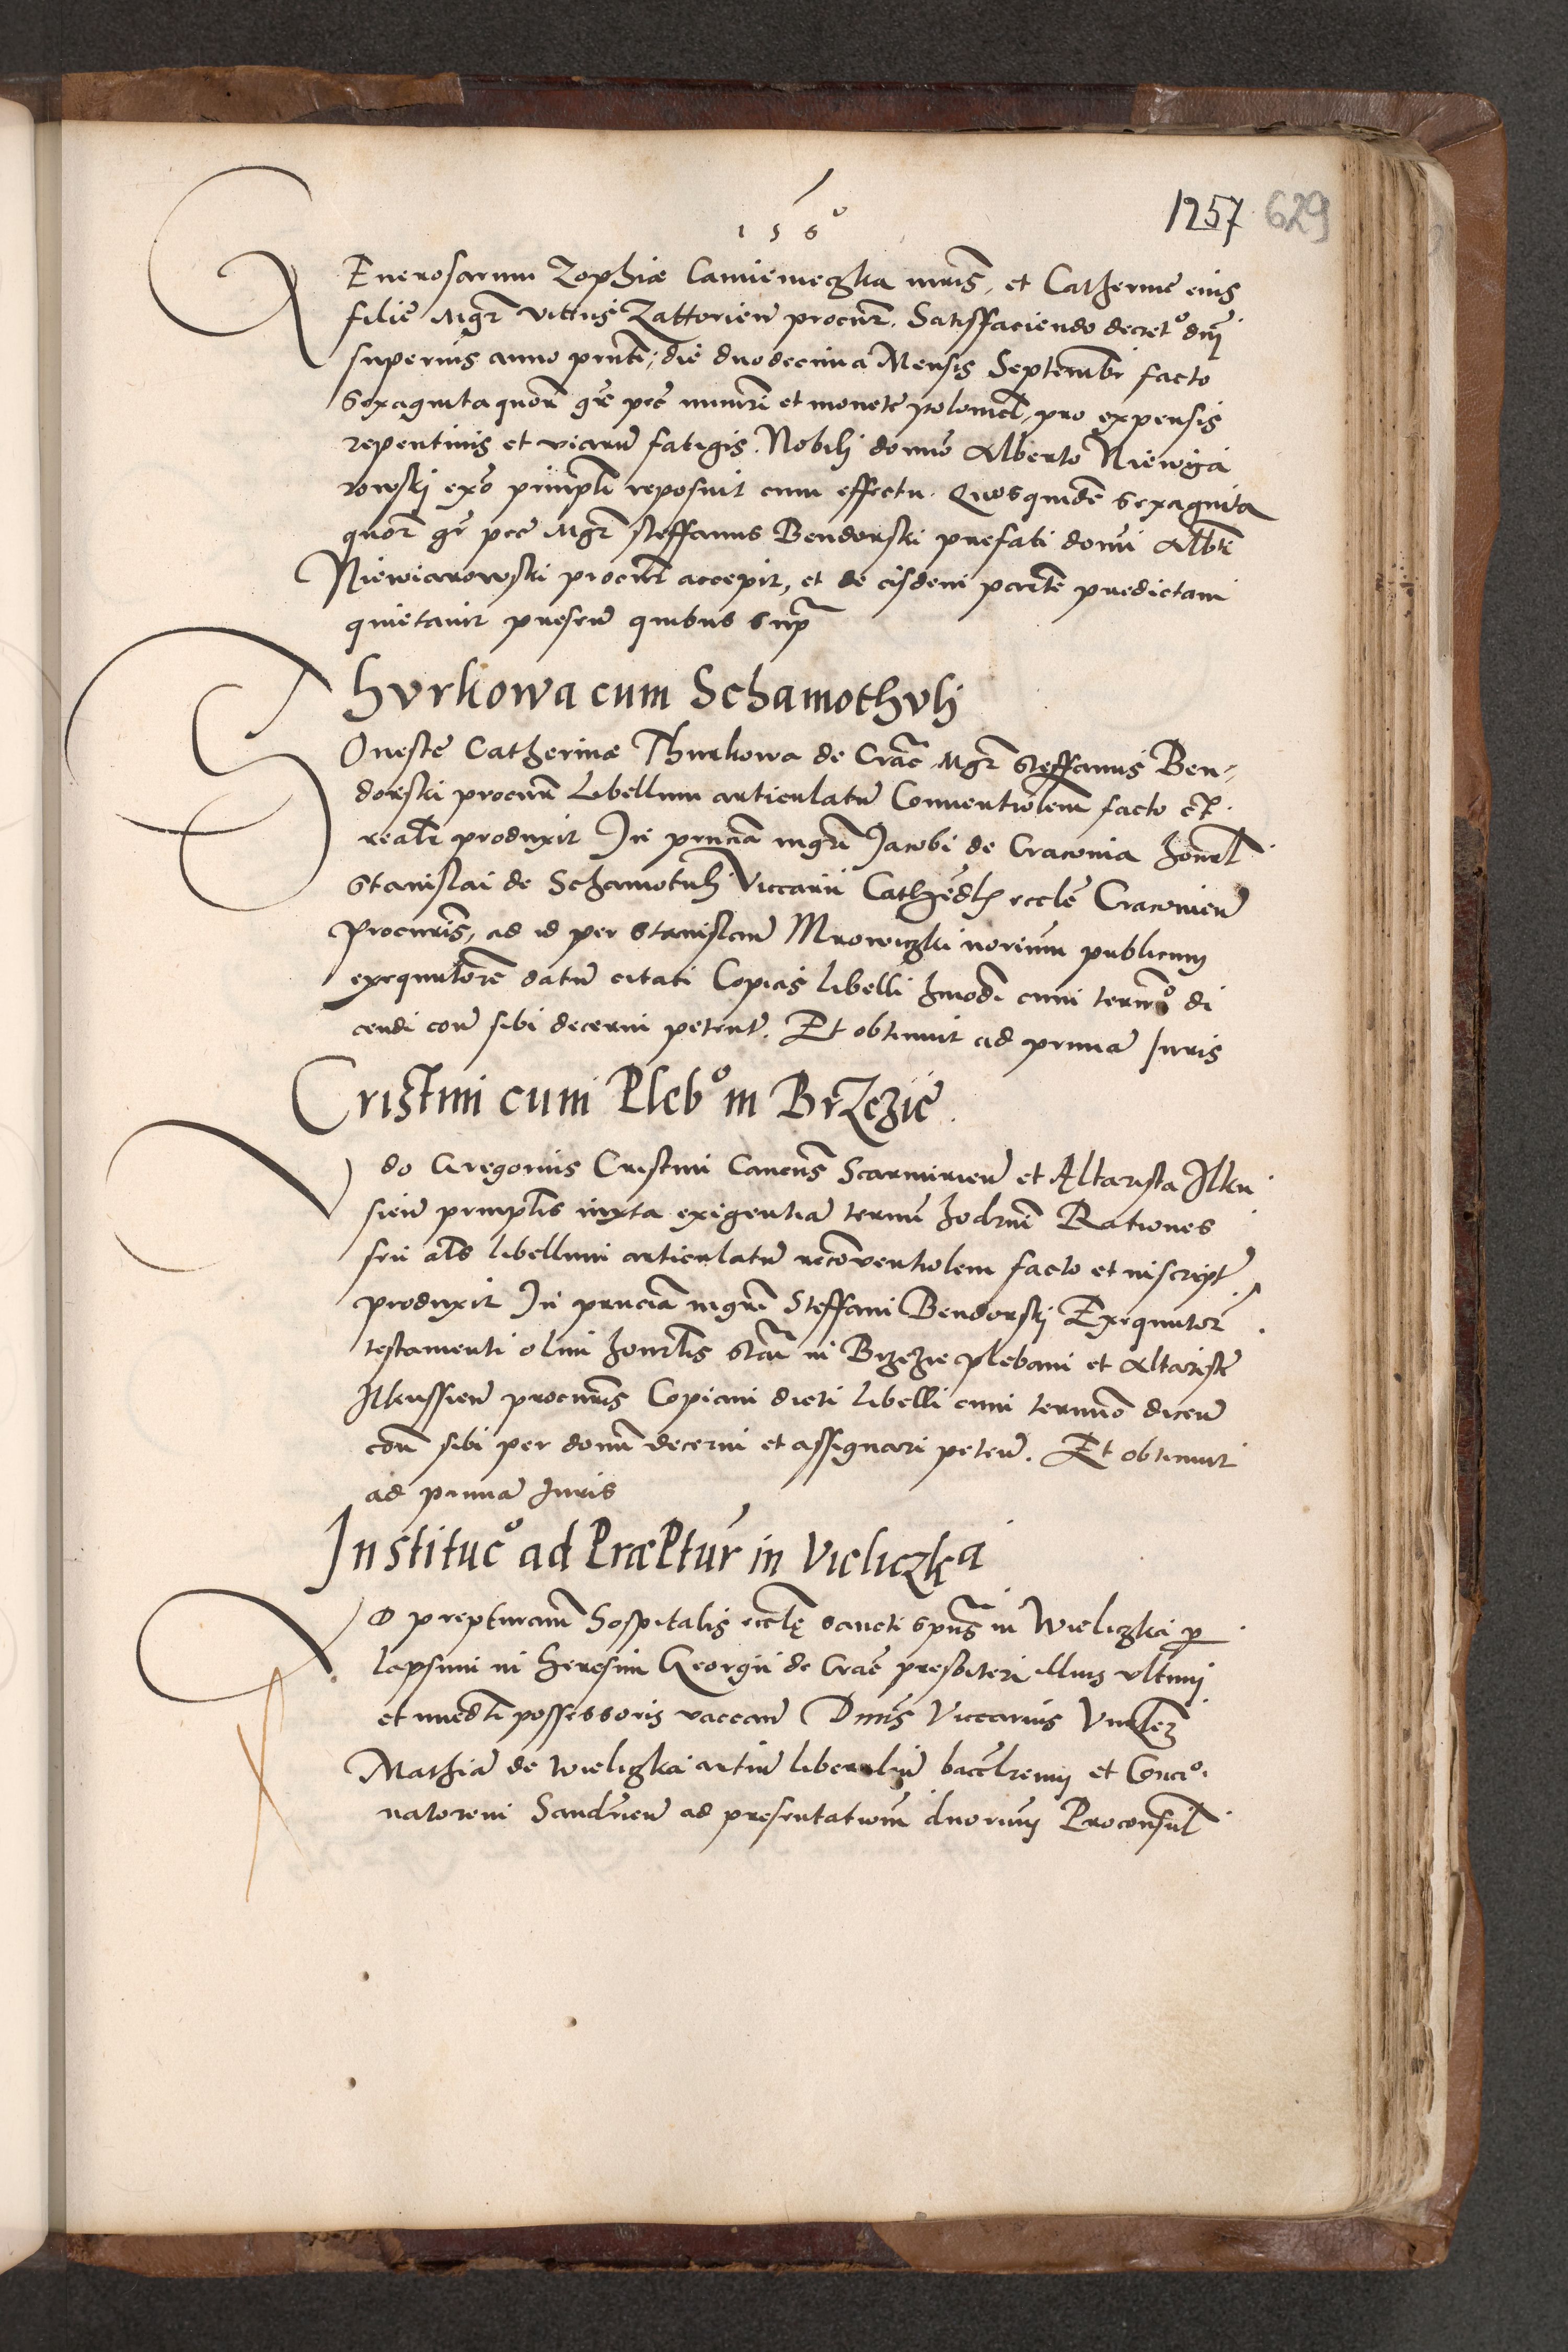 1560
1257 629
Generosarum Zophiæ Camieniečzka mřis, et Catherine eius
filie Mgr̃ Vittus Zattorieñ procur̃. Satisfaciendo decretº dnj̃
superius anno pñti, die duodecima Mensis Septembr̃ facto
Sexagintaquor̃ gr̃e pec̃ numeri et monete polonicał, pro expensis
repentinis et viarũ fatigis. Nobilj domño Alberto Niewiga
rowskj exõ principli reposuit cum effectu. Quosquidẽ sexaginta
quor̃ gr̃ pec̃ Mgr̃ Steffanus Bendorski prefati domi Albti
Niewiarowski procur̃ accepit, et de eisdem partẽ predictam
quietauit preseñ quibus supr̃
Thurkowa cum Schamothulj
Honeste Catherinæ Thurkowa de Crac̃ Mgr̃ Steffanus Ben-
dorski procur̃ Libellum articulatũ Conuentiolem facto et
realr̃ produxit In pñciã mgr̃i Jacobi de Cracouia honorł
Stanislai de Schamotulj Viccarii Cathedłis eccłe Cracouieñ
Procur̃is, ad id per Stanislaũ Mrowiczki noriũm publicum
exequutorẽ datũ citati Copias libelli hmodi cum termº di
cendi coñ sibi decerni peteñt. Et obtinuit ad primã Juris
Cristini cum Plebº in Brzezie.
Vdo Gregorius Cristini Canoñs Scarmirieñ et Altarista Ilku
sieñ principlis iuxta exigentiã termi hodrñi Rationes
seu ałs libellum articulatũ recoñventiolem facto et inscript̃
produxit In pñciã mgr̃i Steffani Bendorskj Exequutor̃
testamenti olim honorłis Stañi in Brzezie plebani et Altariste
Ilkussieñ procur̃is Copiam dicti libelli cum termino diceñ
coñ sibi per domñ decerni et assignari peteñ. Et obtinuit
ad primã Juris
Institucº ad Præptur̃ in Vieliczka
AD prepturam̃ Hospitalis eccłe sancti spũs in Wieliczka per
lapsum in heresim Georgii de Crac̃ presbiteri illius vltimj
et immedłi possessoris vaccañ Dñus Viccarius
Mathiã de Wieliczka artiũ liberaliũ baccłreum et Concio
natorem Sandr̃ieñ ad presentationẽ dnorum Proconsuł